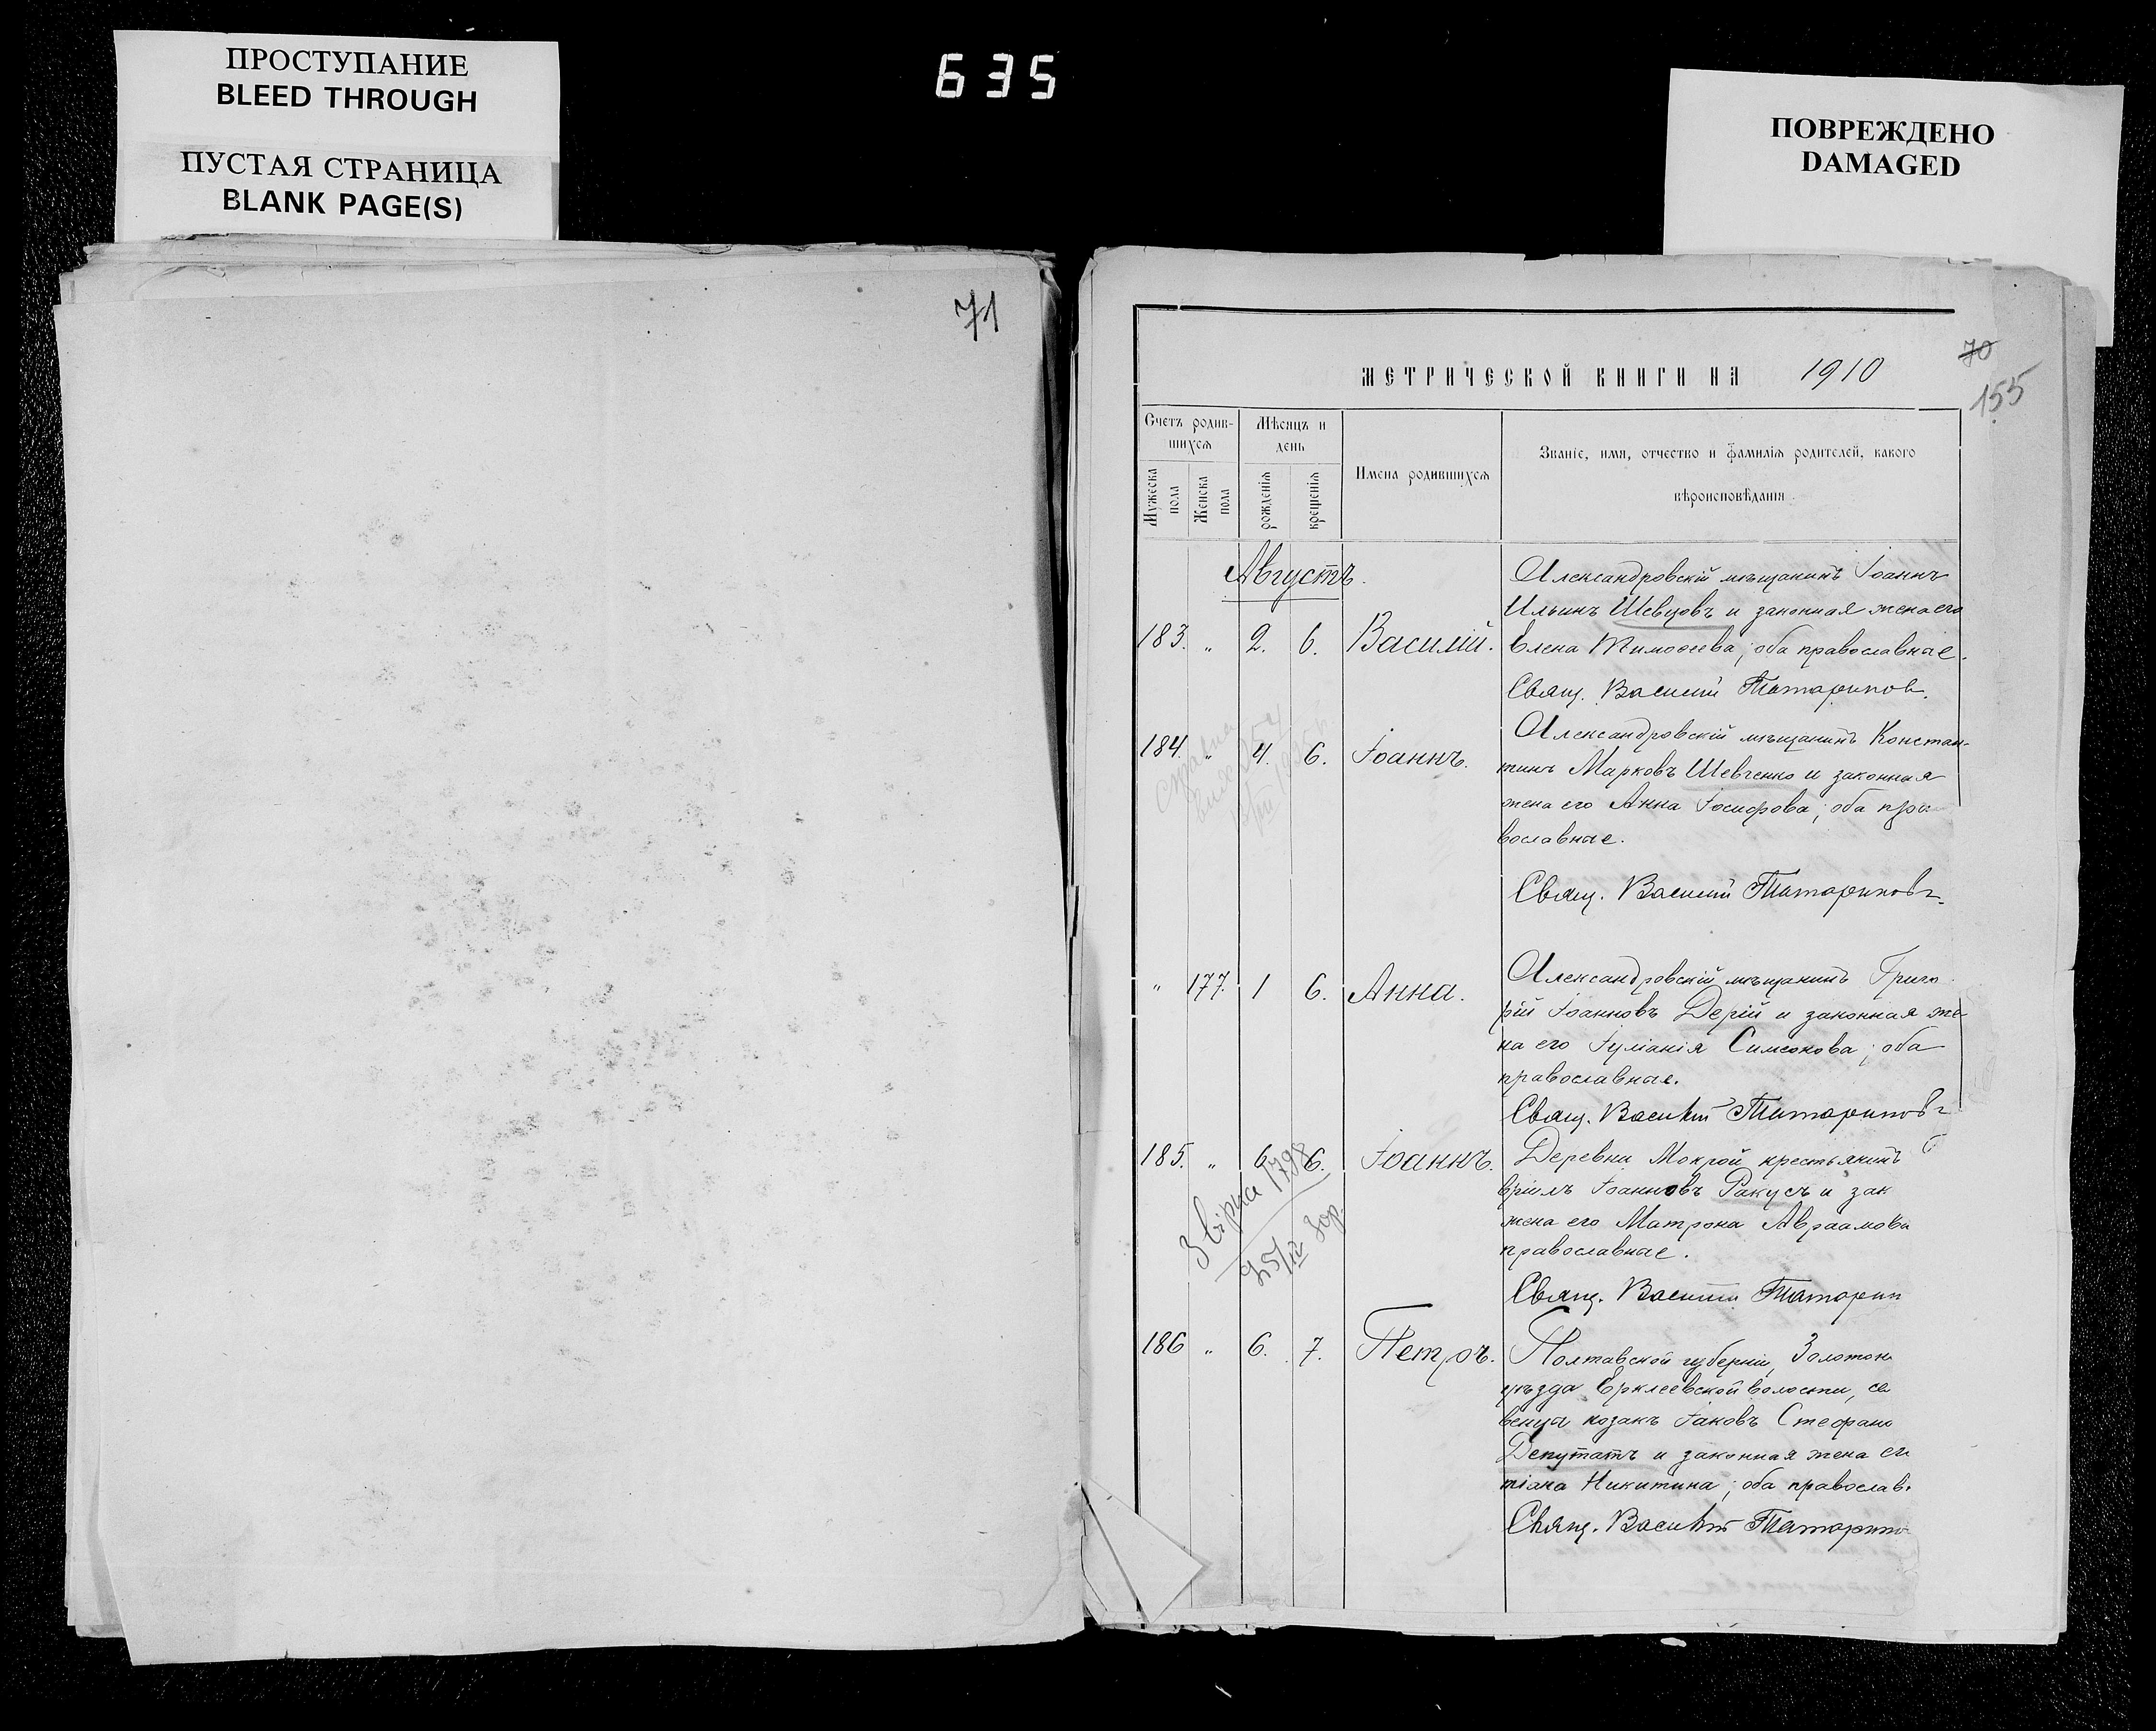 ПРОСТУПАНИЕ
BLEED THROUGH
ПУСТАЯ СТРАНИЦА
BLANK PAGE(S)
635
ПОВРЕЖДЕНО
DAMAGED
71
МЕТРИЧЕСКОЙ КНИГИ НА 1910
70
155
Счетъ родив-
шихся
Мѣсяцъ и
день
Мужеска
пола
Женска
пола
рожденія
крещенія
Имена родившихся
Званіе, имя, отчество и фамилія родителей, какого
вѣроисповѣданія.
Августъ.
183. „ 2. 6. Василій.
Александровскій мѣщанинъ Іоаннъ
Ильинъ Шевцовъ и законная жена его
Елена Тимофеева; оба православные.
Свящ. Василій Татариновъ.
184. „ 4. 6. Іоаннъ.
Александровскій мѣщанинъ Констан-
тинъ Марковъ Шевченко и законная
жена его Анна Іосифова; оба пра-
вославные.
Свящ. Василій Татариновъ.
„ 177. 1 6. Анна.
Александровскій мѣщанинъ Григо-
рій Іоанновъ Дерій и законная же-
на его Іуліанія Симеонова; оба
православные.
Свящ. Василій Татариновъ
185. „ 6 6. Іоаннъ.
Деревни Мокрой крестьянинъ
вріилъ Іоанновъ Ракусъ и зак
жена его Матрона Авраамова
православные.
Свящ. Василій Татарин
Звірка 1798
25/IV
186 „ 6. 7. Петръ.
Полтавской губерніи, Золотон
уѣзда Еркліевской волости, се
венца козакъ Іаковъ Стефано
Депутатъ и законная жена ег
тіана Никитина; оба православ.
Свящ. Василій Татарино